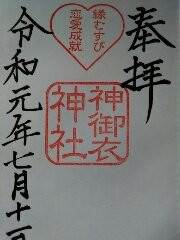 奉拝
縁むすび
恋愛成就
神御衣
神社
令和元年七月十一日